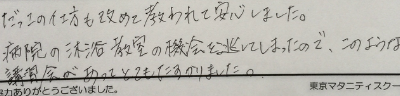 だっこの仕方も改めて教われて安心しました。
病院の沐浴教室の機会を逃してしまったので、このような
講習会があってとてもたすかりました。
力ありがとうございました。
東京マタニティスクー